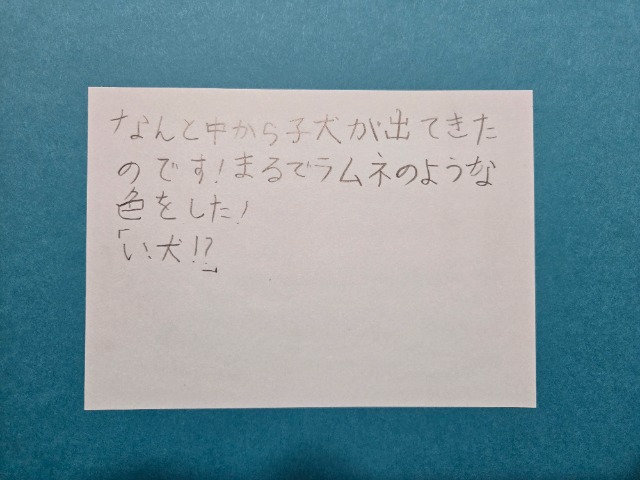 なんと中から子犬が出てきた
のです!まるでラムネのような
色をした!
「い犬!?」